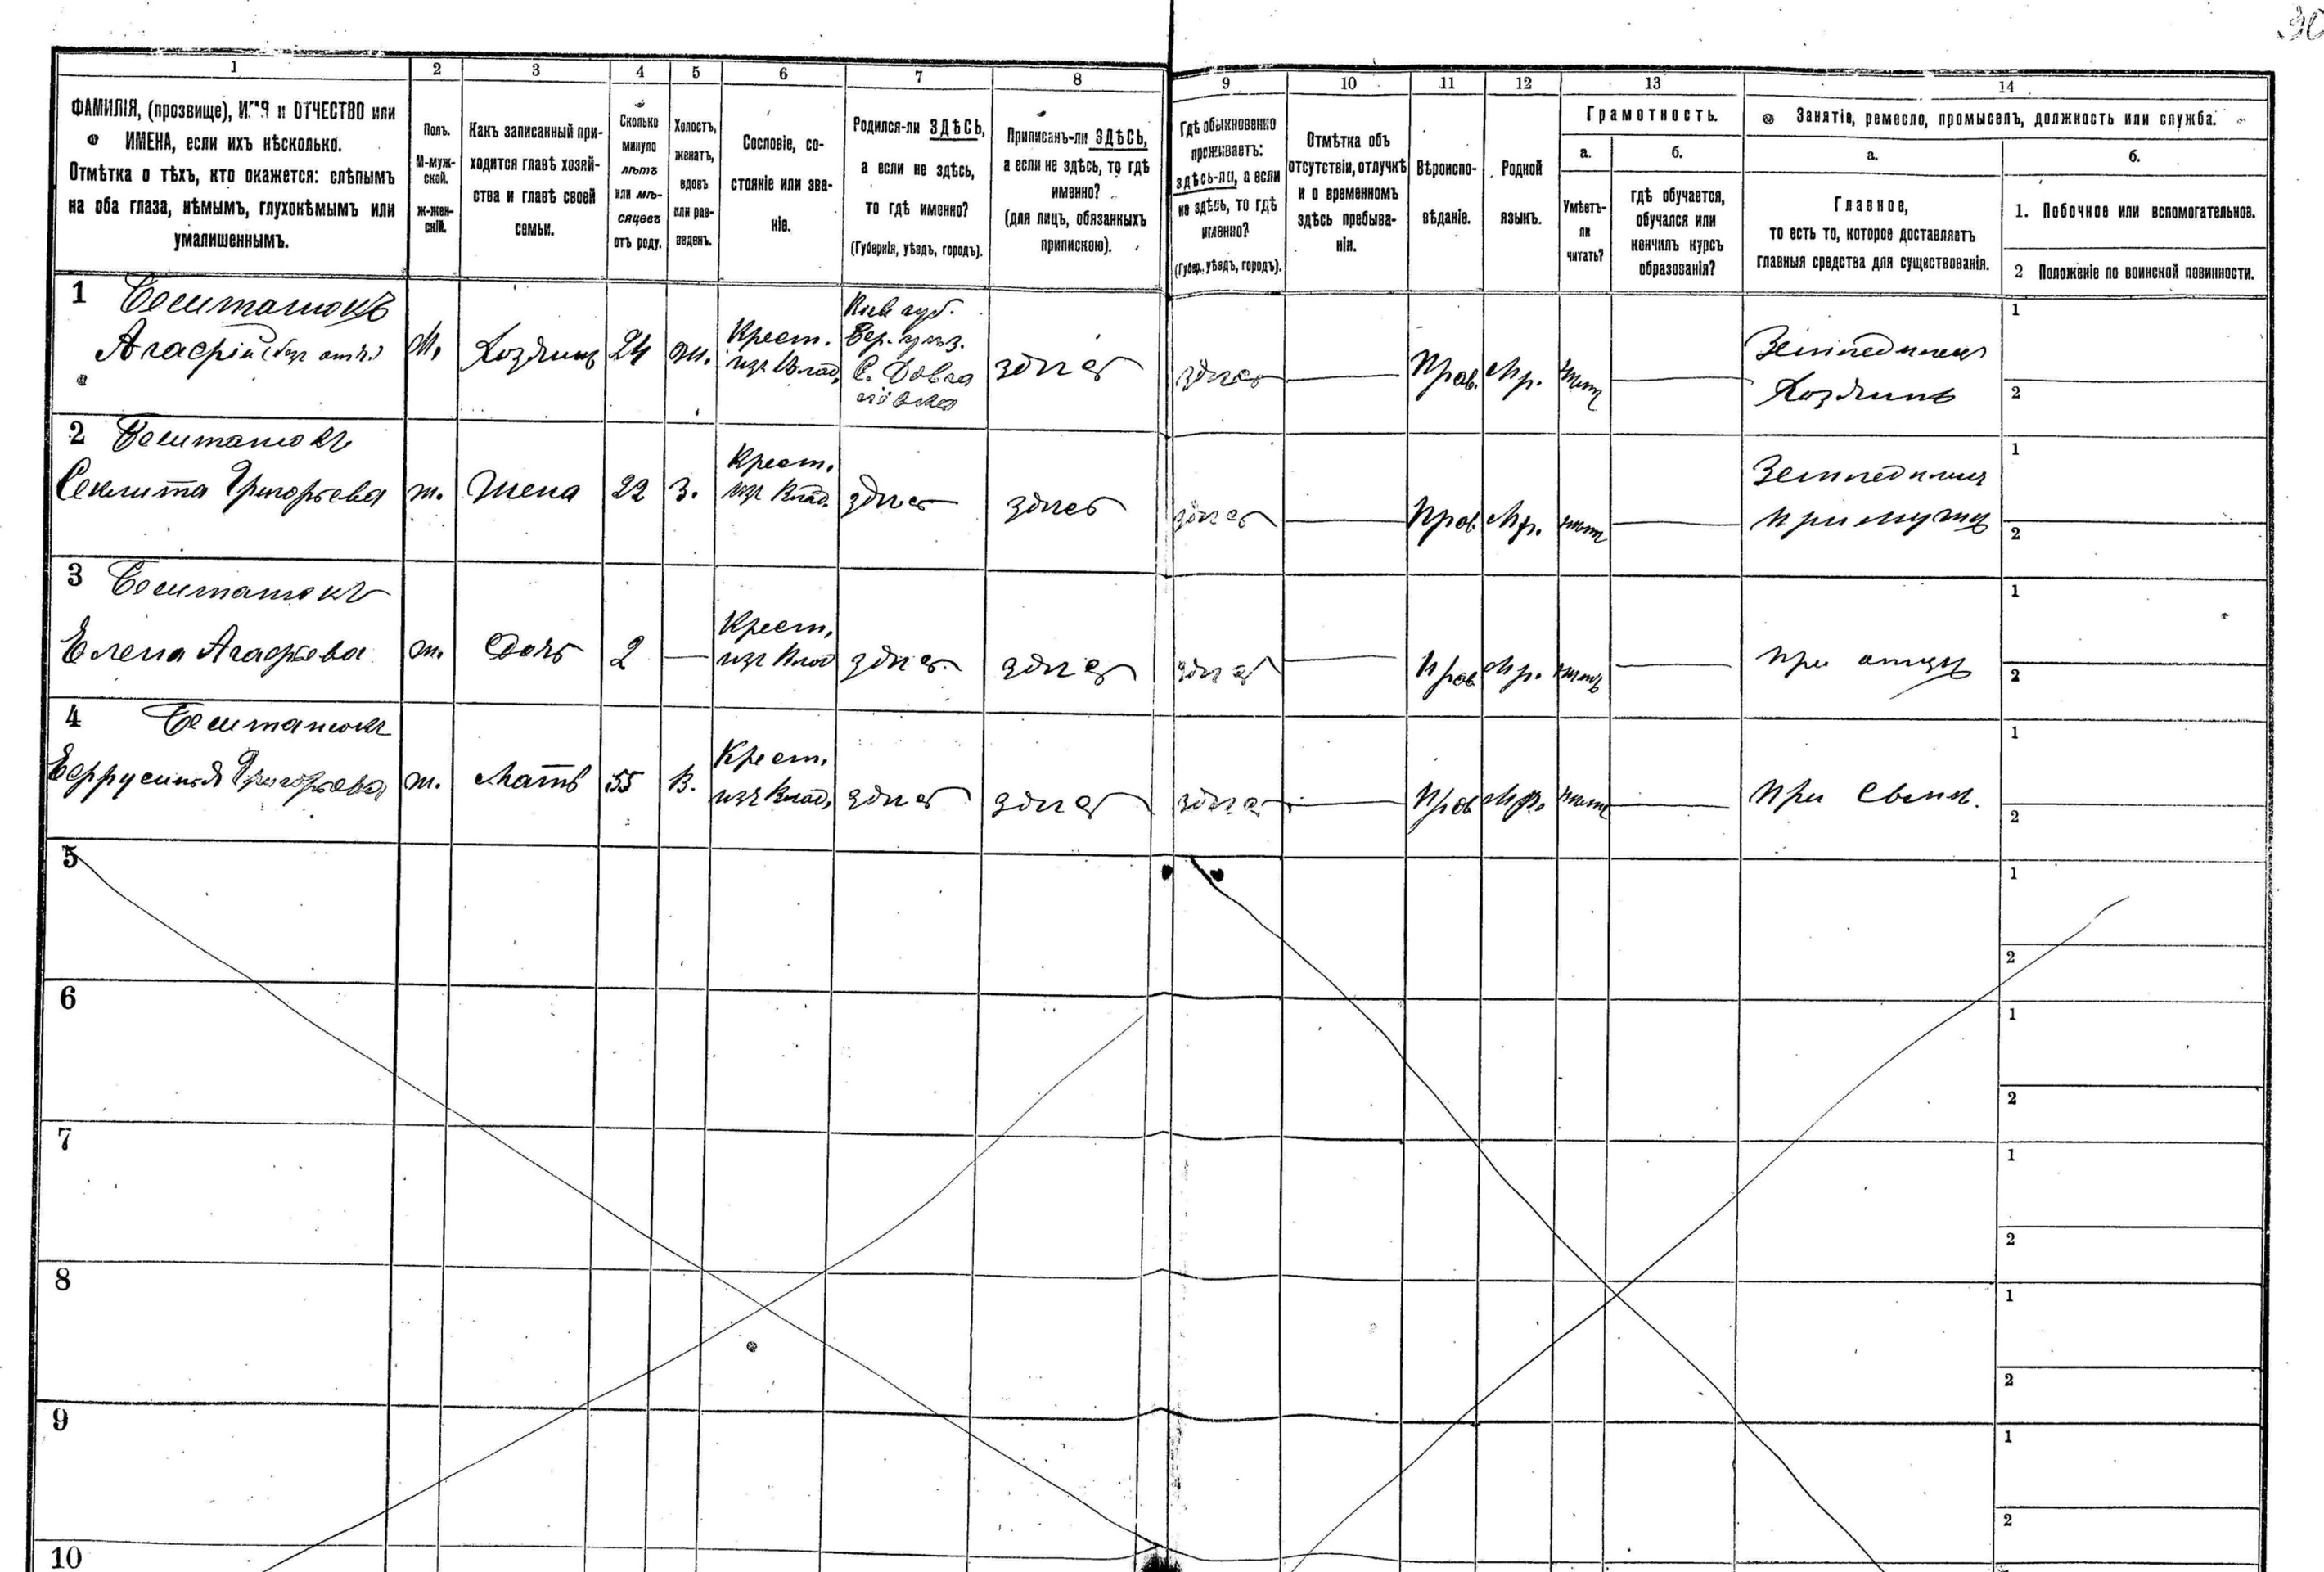 1 2 3 4 5 6 7 8 9 10 11 12 13 14
ФАМИЛІЯ, (прозвище), ИМЯ и ОТЧЕСТВО или
ИМЕНА, если ихъ нѣсколько.
Отмѣтка о тѣхъ, кто окажется: слѣпымъ
на оба глаза, нѣмымъ, глухонѣмымъ или
умалишеннымъ.
Полъ.
М-муж-
ской.
Ж-жен-
скій.
Какъ записанный при-
ходится главѣ хозяй-
ства и главѣ своей
семьи.
Сколько
минуло
лѣтъ
или мѣ-
сяцевъ
отъ роду.
Холостъ,
женатъ,
вдовъ
или раз-
веденъ.
Сословіе, со-
стояніе или зва-
ніе.
Родился-ли ЗДѢСЬ,
а если не здѣсь,
то гдѣ именно?
(Губернія, уѣздъ, городъ).
Приписанъ-ли ЗДѢСЬ,
а если не здѣсь, то гдѣ
именно?
(для лицъ, обязанныхъ
припискою).
Гдѣ обыкновенно
проживаетъ:
здѣсь-ли, а если
не здѣсь, то гдѣ
именно?
(Губер., уѣздъ, городъ).
Отмѣтка объ
отсутствіи, отлучкѣ
и о временномъ
здѣсь пребыва-
ніи.
Вѣроиспо-
вѣданіе.
Родной
языкъ.
Грамотность.
а.
Умѣетъ-
ли
читать?
б.
гдѣ обучается,
обучался или
кончилъ курсъ
образованія?
Занятіе, ремесло, промыселъ, должность или служба.
а.
Главное,
то есть то, которое доставляетъ
главныя средства для существованія.
б.
1. Побочное или вспомогательное.
2 Положеніе по воинской повинности.
1
Агафій (безъ отч.)
М.
Хозяинъ
24
ж.
Крест.
изъ Влад.
Кіев губ.
здѣсь
здѣсь
Прав.
Мр.
нѣтъ
Хозяинъ
1
2
2
Григорьева
ж.
Жена
22
З.
Крест.
изъ Влад.
здѣсь
здѣсь
здѣсь
Прав.
Мр.
нѣтъ
при мужѣ
1
2
3
Елена Агафьева
ж.
Дочь
2
Крест.
изъ Влад
здѣсь
здѣсь
здѣсь
Прав
Мр.
нѣтъ
при отцѣ
1
2
4
Григорьева
ж.
Мать
55
В.
Крест.
изъ Влад.
здѣсь
здѣсь
здѣсь
Прав
Мр.
нѣтъ
при
1
2
5
1
2
6
1
2
7
1
2
8
1
2
9
1
2
10